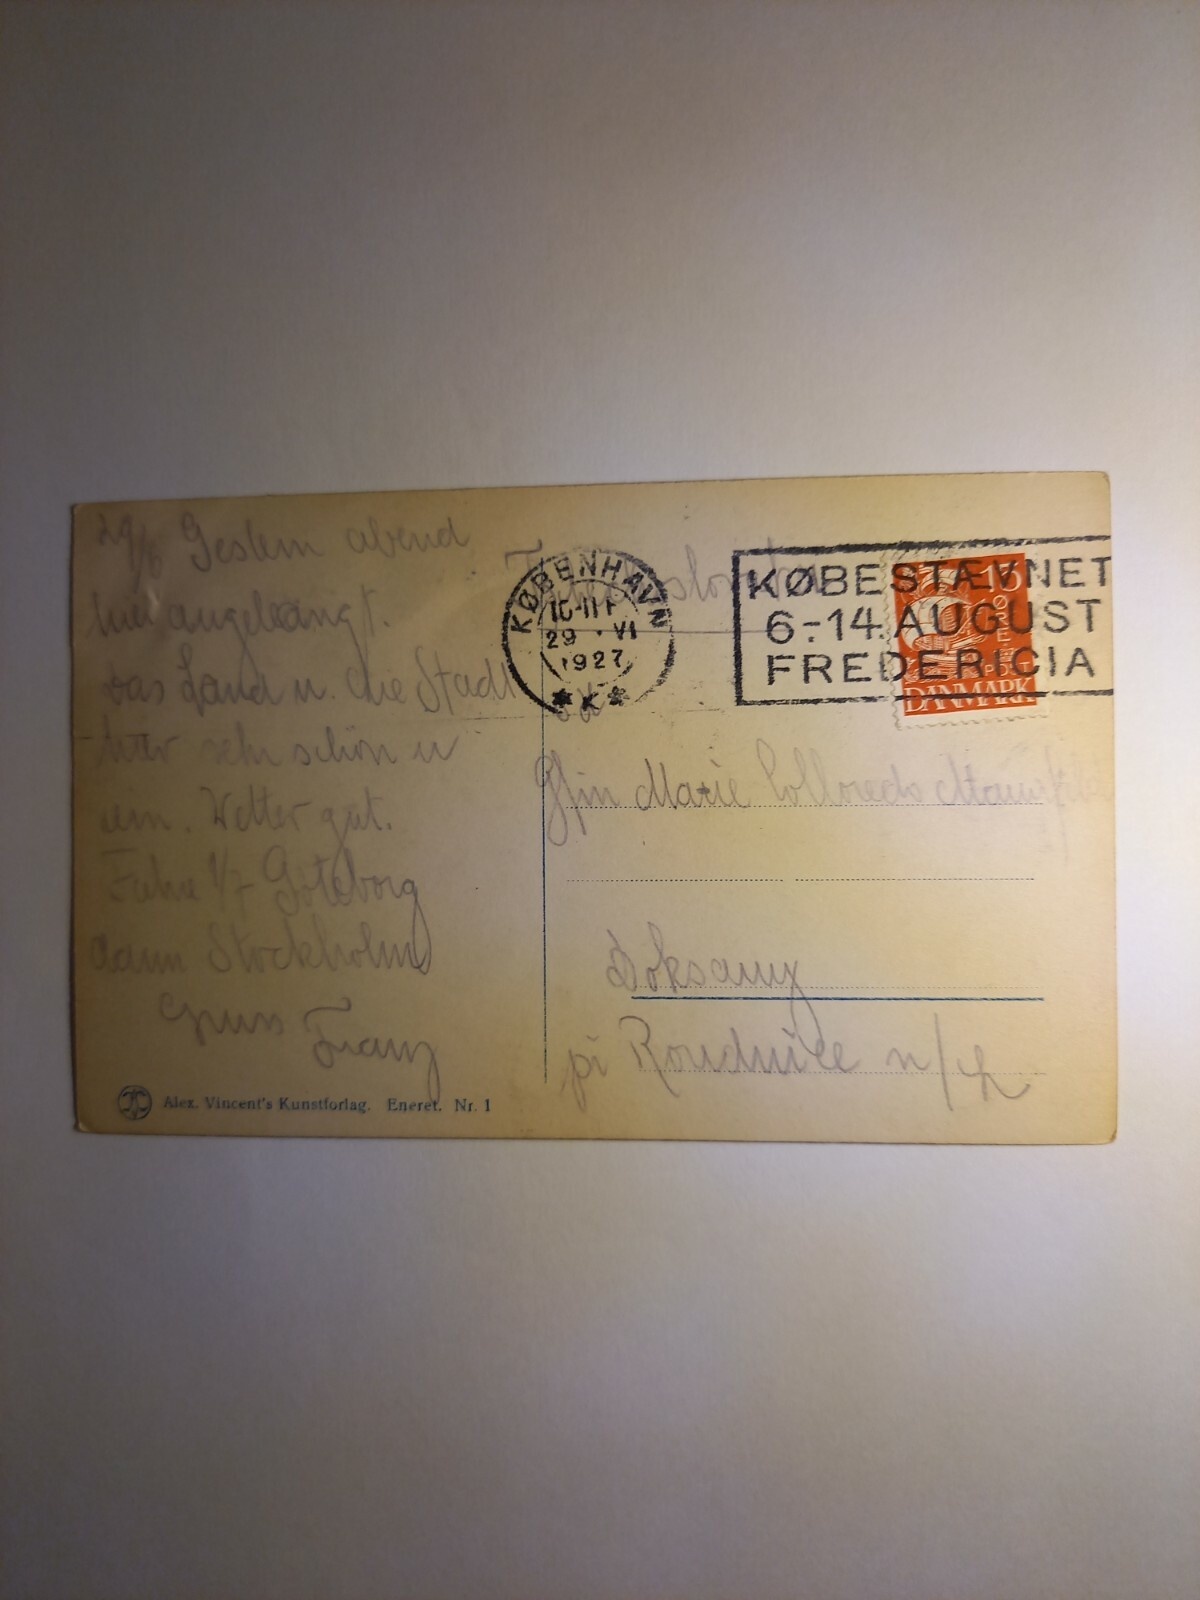 29/6 Gestern abend
hier angelangt.
Das Land u. die Stadt
hier sehr schön u
Wetter gut.
Fahre 1/7 Göteborg
dann Stockholm
Gruss
Franz
Alex. Vincent's Kunstforlag. Eneret. Nr. 1
KØBENHAVN
29 · VI
1927
* K *
KØBESTÆVNET
6-14. AUGUST
FREDERICIA
15
ØRE
PORT
DANMARK
Gfin Marie Colloredo Mannsfeld
Doksany
pi Roudnice n/L